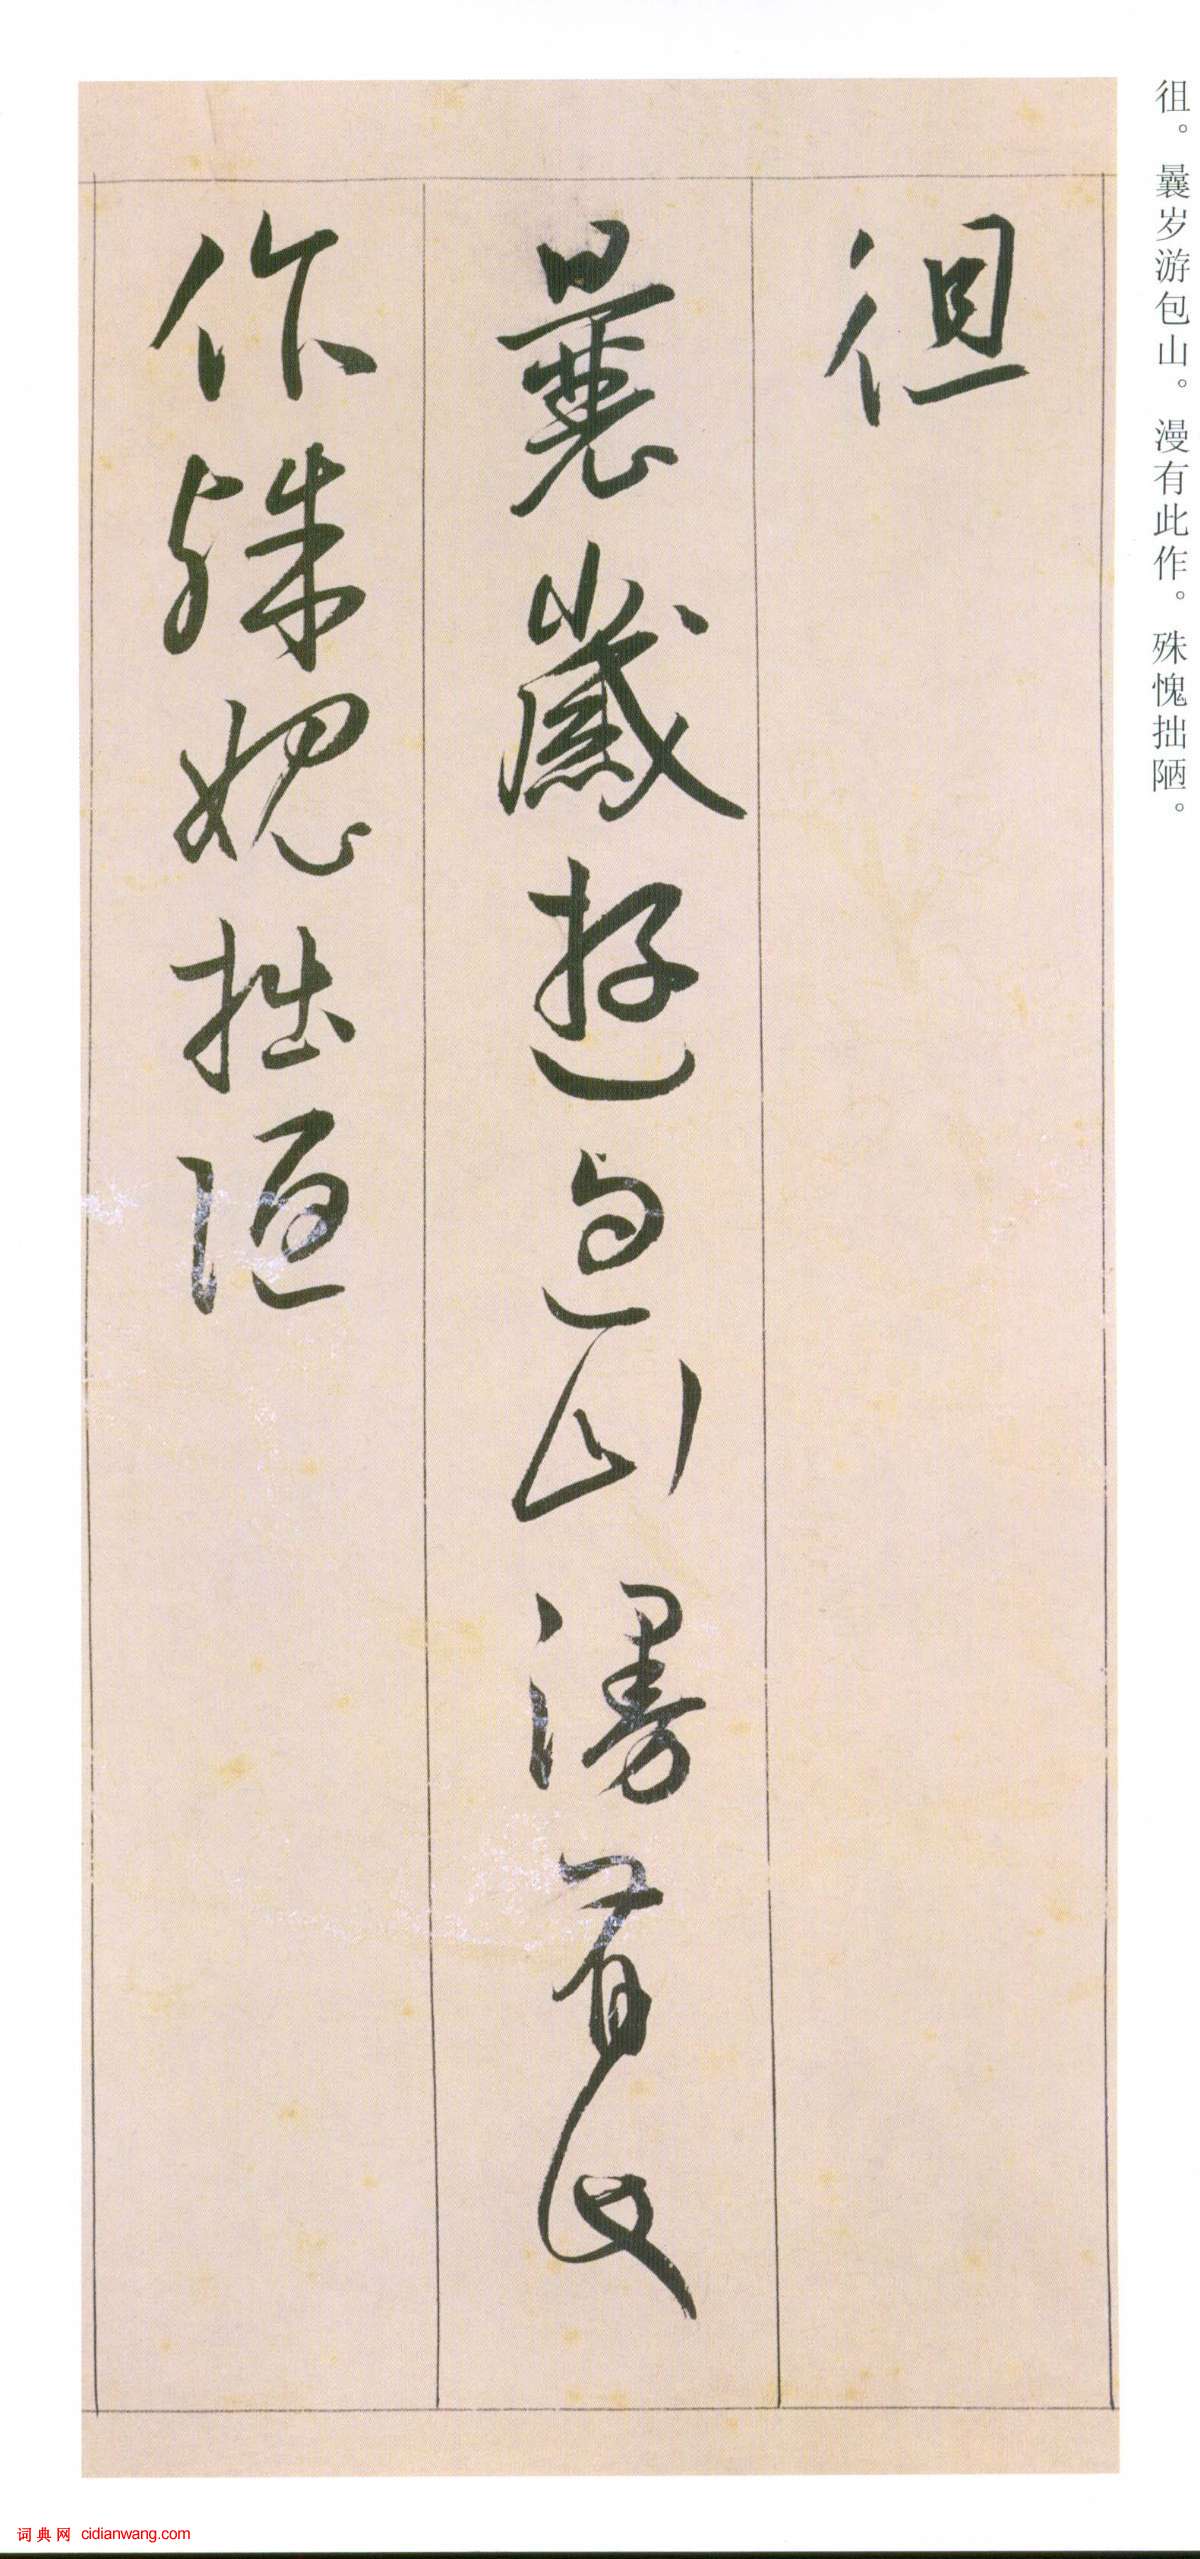 徂。曩岁游包山。漫有此作。殊愧拙陋。
徂
曩歲遊包山漫有此
作殊媿拙陋
词典网 cidianwang.com